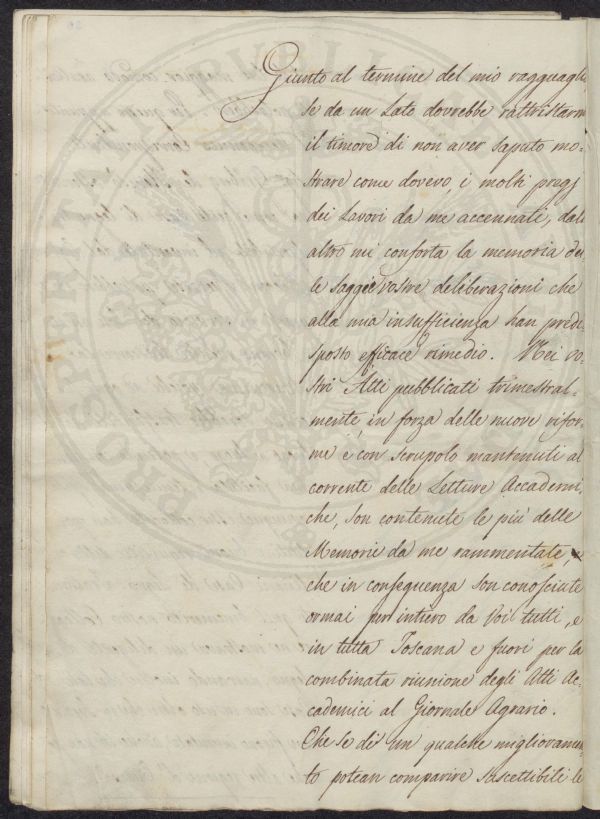 Giunto al termine del mio ragguagli
se da un Lato dovrebbe rattristarm
il timore di non aver saputo mo-
strare come dovevo, i molti pregj
dei Lavori da me accennati, dall
altro mi conforta la memoria del
le saggie vostre deliberazioni che
alla mia insufficienza han predi
sposto efficace rimedio. Nei vo-
stri Atti pubblicati trimestral-
mente in forza delle nuove rifor
me e con scrupolo mantenuti al
corrente delle Letture Accademi,
che, son contenute le più delle
Memorie da me rammentate,
che in conseguenza son conosciute
ormai per intiero da Voi tutti, e
in tutta Toscana e fuori per la
combinata riunione degli Atti Ac-
cademici al Giornale Agrario.
Che se di un qualche miglioramen-
to potean comparire suscettibili le